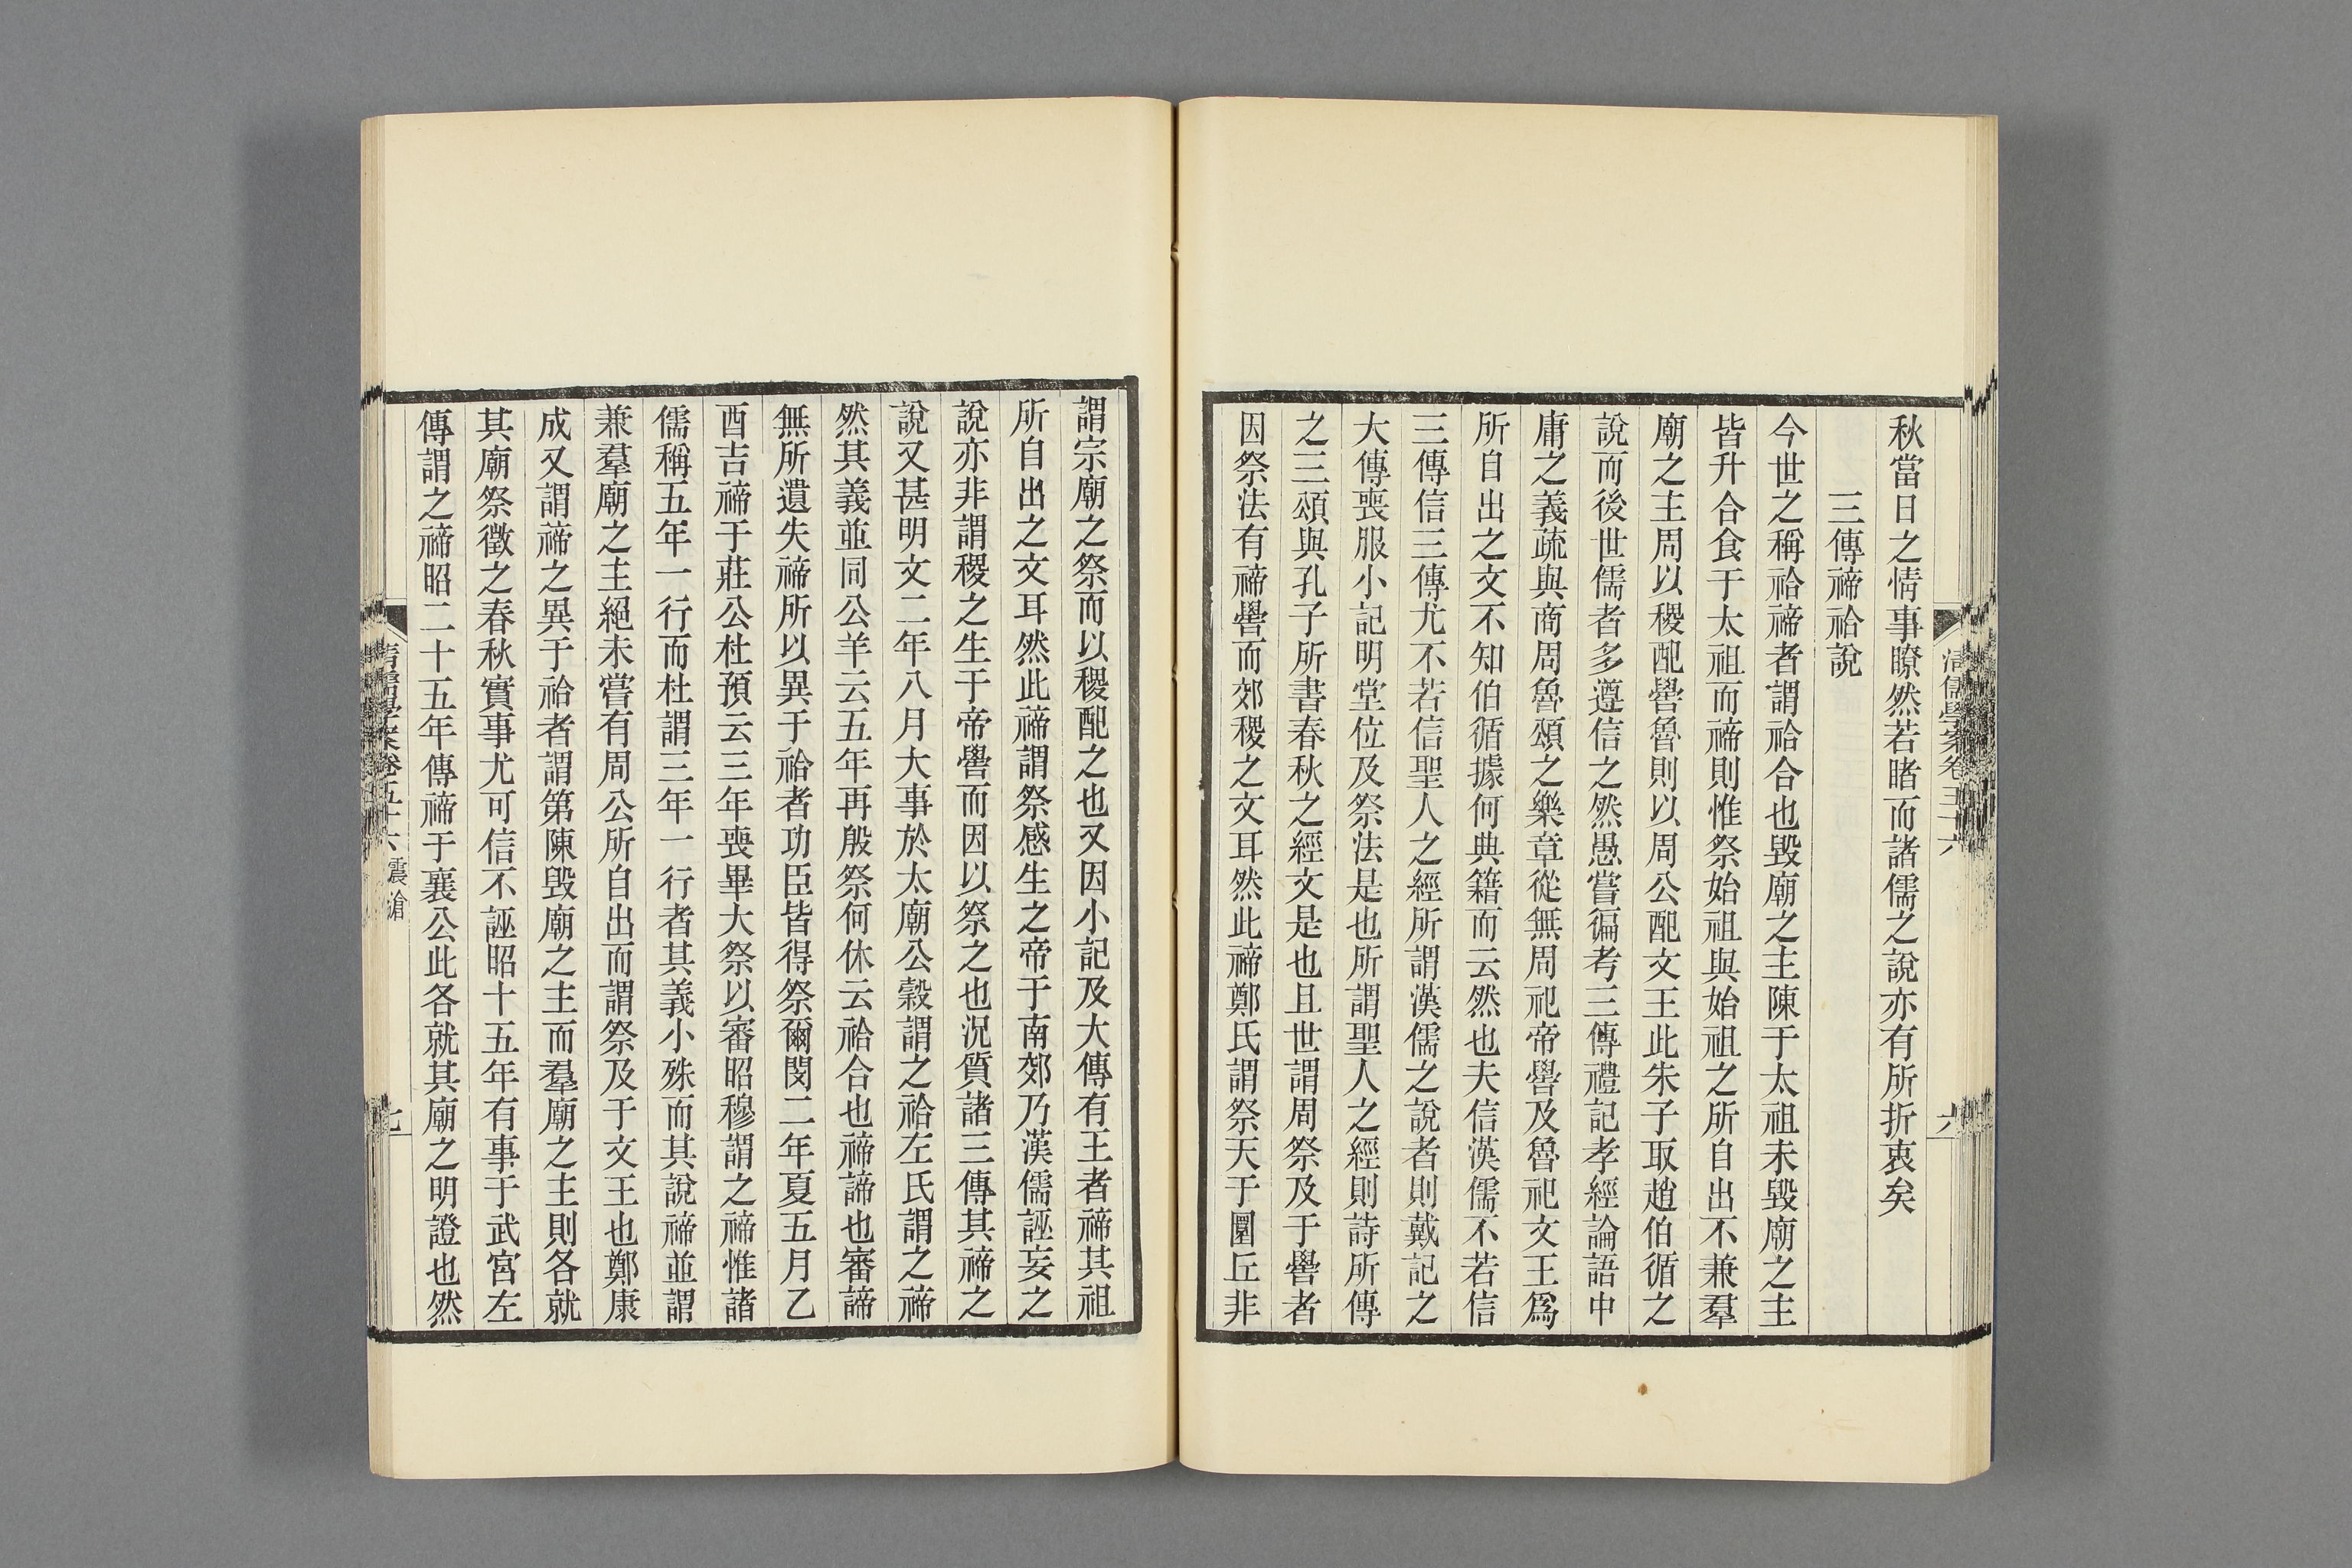 秋當日之情事瞭然若睹而諸儒之說亦有所折衷矣
三傳禘祫說
今世之稱祫禘者謂祫合也毀廟之主陳于太祖未毀廟之主
皆升合食于太祖而禘則惟祭始祖與始祖之所自出不兼羣
廟之主周以稷配嚳魯則以周公配文王此朱子取趙伯循之
說而後世儒者多遵信之然愚嘗徧考三傳禮記孝經論語中
庸之義疏與商周魯頌之樂章從無周祀帝嚳及魯祀文王爲
所自出之文不知伯循據何典籍而云然也夫信漢儒不若信
三傳信三傳尤不若信聖人之經所謂漢儒之說者則戴記之
大傳喪服小記明堂位及祭法是也所謂聖人之經則詩所傳
之三頌與孔子所書春秋之經文是也且世謂周祭及于嚳者
因祭法有禘嚳而郊稷之文耳然此禘鄭氏謂祭天于圜丘非
謂宗廟之祭而以稷配之也又因小記及大傳有王者禘其祖
所自出之文耳然此禘謂祭感生之帝于南郊乃漢儒誣妄之
說亦非謂稷之生于帝嚳而因以祭之也況質諸三傳其禘之
說又甚明文二年八月大事於太廟公穀謂之祫左氏謂之禘
然其義並同公羊云五年再殷祭何休云祫合也禘諦也審諦
無所遺失禘所以異于祫者功臣皆得祭爾閔二年夏五月乙
酉吉禘于莊公杜預云三年喪畢大祭以審昭穆謂之禘惟諸
儒稱五年一行而杜謂三年一行者其義小殊而其說禘並謂
兼羣廟之主絕未嘗有周公所自出而謂祭及于文王也鄭康
成又謂禘之異于祫者謂第陳毀廟之主而羣廟之主則各就
其廟祭徵之春秋實事尤可信不誣昭十五年有事于武宮左
傳謂之禘昭二十五年傳禘于襄公此各就其廟之明證也然
清儒學案卷五十六
六
清儒學案卷五十六 震滄
七